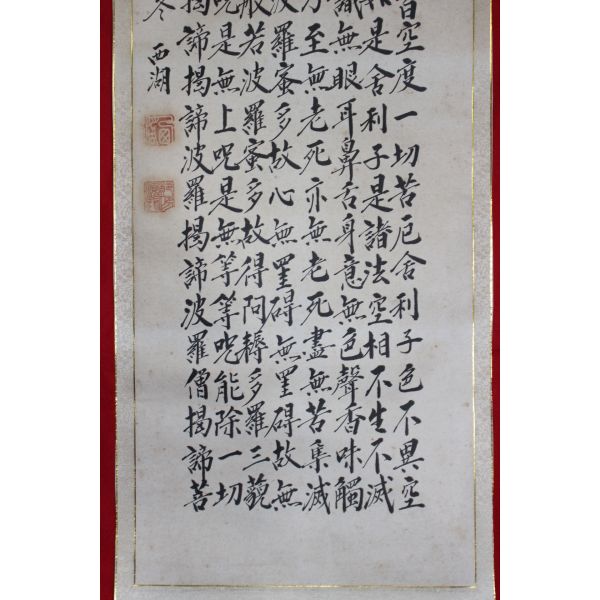 皆空度一切苦厄舍利子色不異空
是舍利子是諸法空相不生不滅
識無眼耳鼻舌身意無色聲香味觸
乃至無老死亦無老死盡無苦集滅
波羅蜜多故心無罣碍無罣碍故無
般若波羅蜜多故得阿耨多羅三藐
咒是無上咒是無等等咒能除一切
揭諦揭諦波羅揭諦波羅僧揭諦菩
冬 西湖